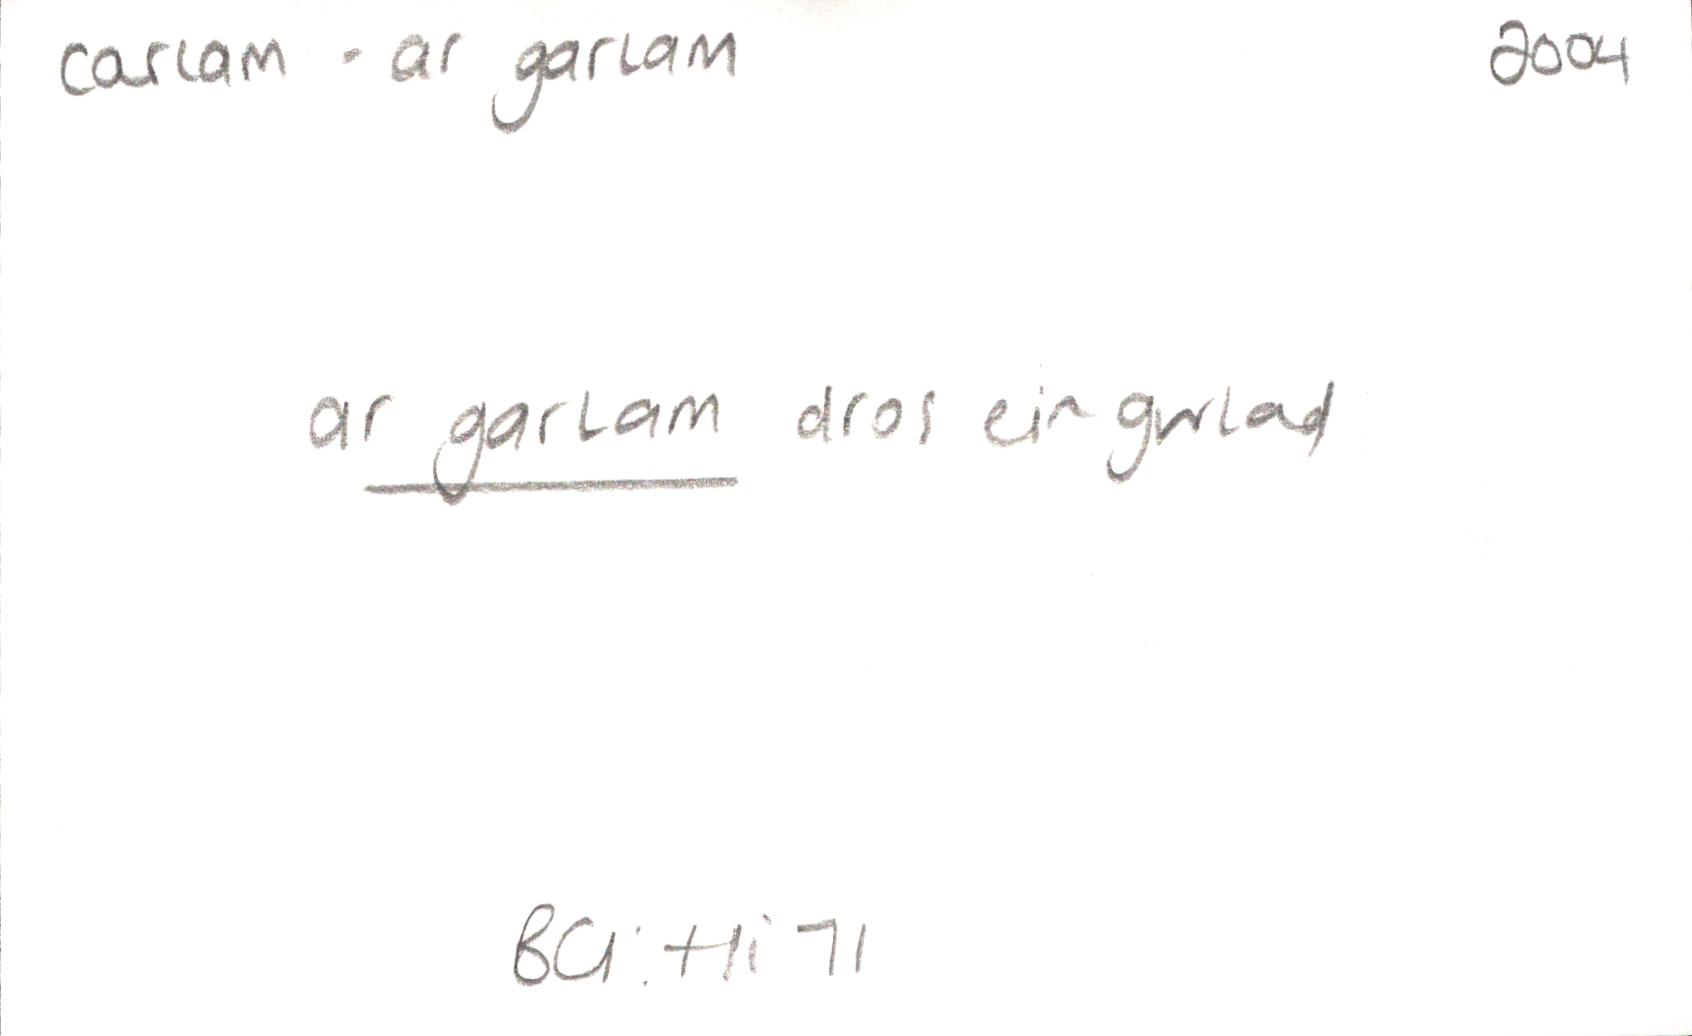 carlam - ar garlam 2004
ar garlam dros ein gwlad
BG: Hi 71